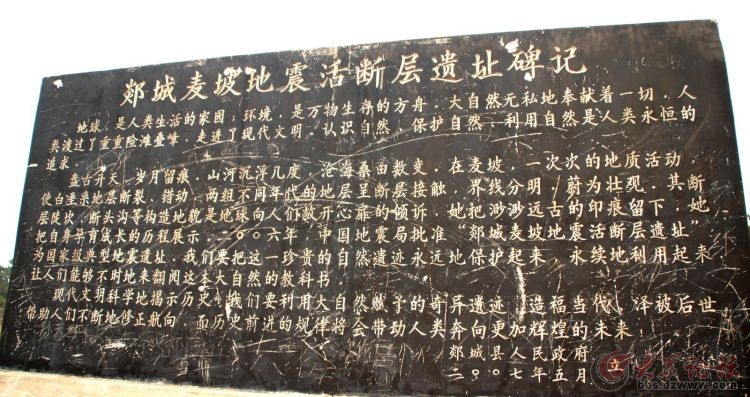 郯城麦坡地震活断层遗址碑记
地球，是人类生活的家园；环境，是万物生存的方舟，大自然无私地奉献着一切，人
类渡过了重重险滩叠峰，走进了现代文明，认识自然、保护自然、利用自然是人类永恒的
追求。
盘古开天，岁月留痕，山河沉浮几度，沧海桑田数变，在麦坡，一次次的地质活动，
使白垩系地层断裂、错动，两组不同年代的地层呈断层接触，界线分明，蔚为壮观，其断
层陡坎、断头沟等构造地貌是地球向人们敞开心扉的倾诉，她把渺渺远古的印痕留下，她
把自身孕育成长的历程展示，二〇〇六年，中国地震局批准“郯城麦坡地震活断层遗址”
为国家级典型地震遗址，我们要把这一珍贵的自然遗迹永远地保护起来，永续地利用起来，
让人们能够不时地来翻阅这本大自然的教科书。
现代文明科学地揭示历史，我们要利用大自然赋予的奇异遗迹，造福当代，泽被后世，
帮助人们不断地修正航向，而历史前进的规律将会带动人类奔向更加辉煌的未来，
郯城县人民政府
立
二〇〇七年五月
bbs.dzwww.com